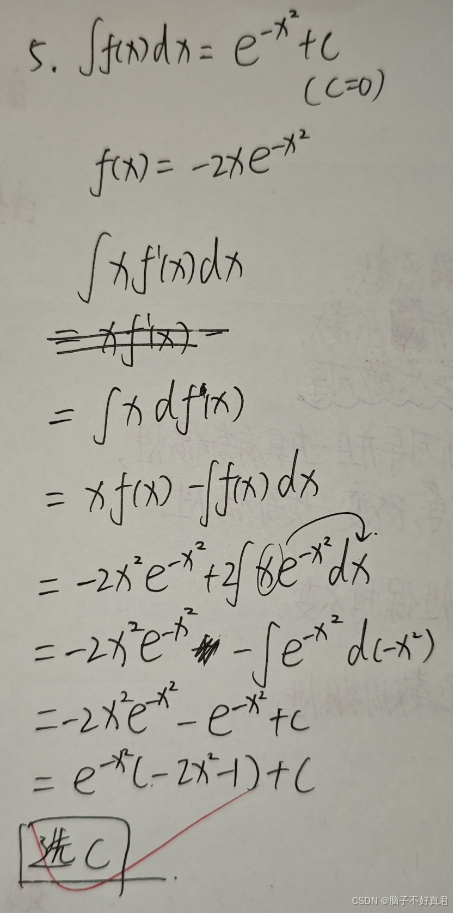 5. ∫f(x)dx = e^{-x²}+C
(C=0)
f(x) = -2xe^{-x²}
∫xf'(x)dx
= xf'(x) -
= ∫x df(x)
= xf(x) - ∫f(x)dx
= -2x²e^{-x²}+2∫xe^{-x²}dx
= -2x²e^{-x²} - ∫e^{-x²}d(-x²)
= -2x²e^{-x²} - e^{-x²}+C
= e^{-x²}(-2x²-1)+C
选C
CSDN @脑子不好真君